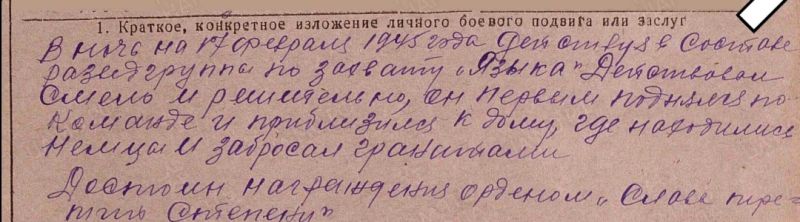 1. Краткое, конкретное изложение личного боевого подвига или заслуг
В ночь на 17 февраля 1945 года Действуя в составе
разведгруппы по захвату „Языка" Действовал
Смело и решительно, он первым поднялся по
команде и приблизился к дому, где находились
Немцы и забросал гранатами
Достоин награждения орденом „Слава тре-
тьей Степени"